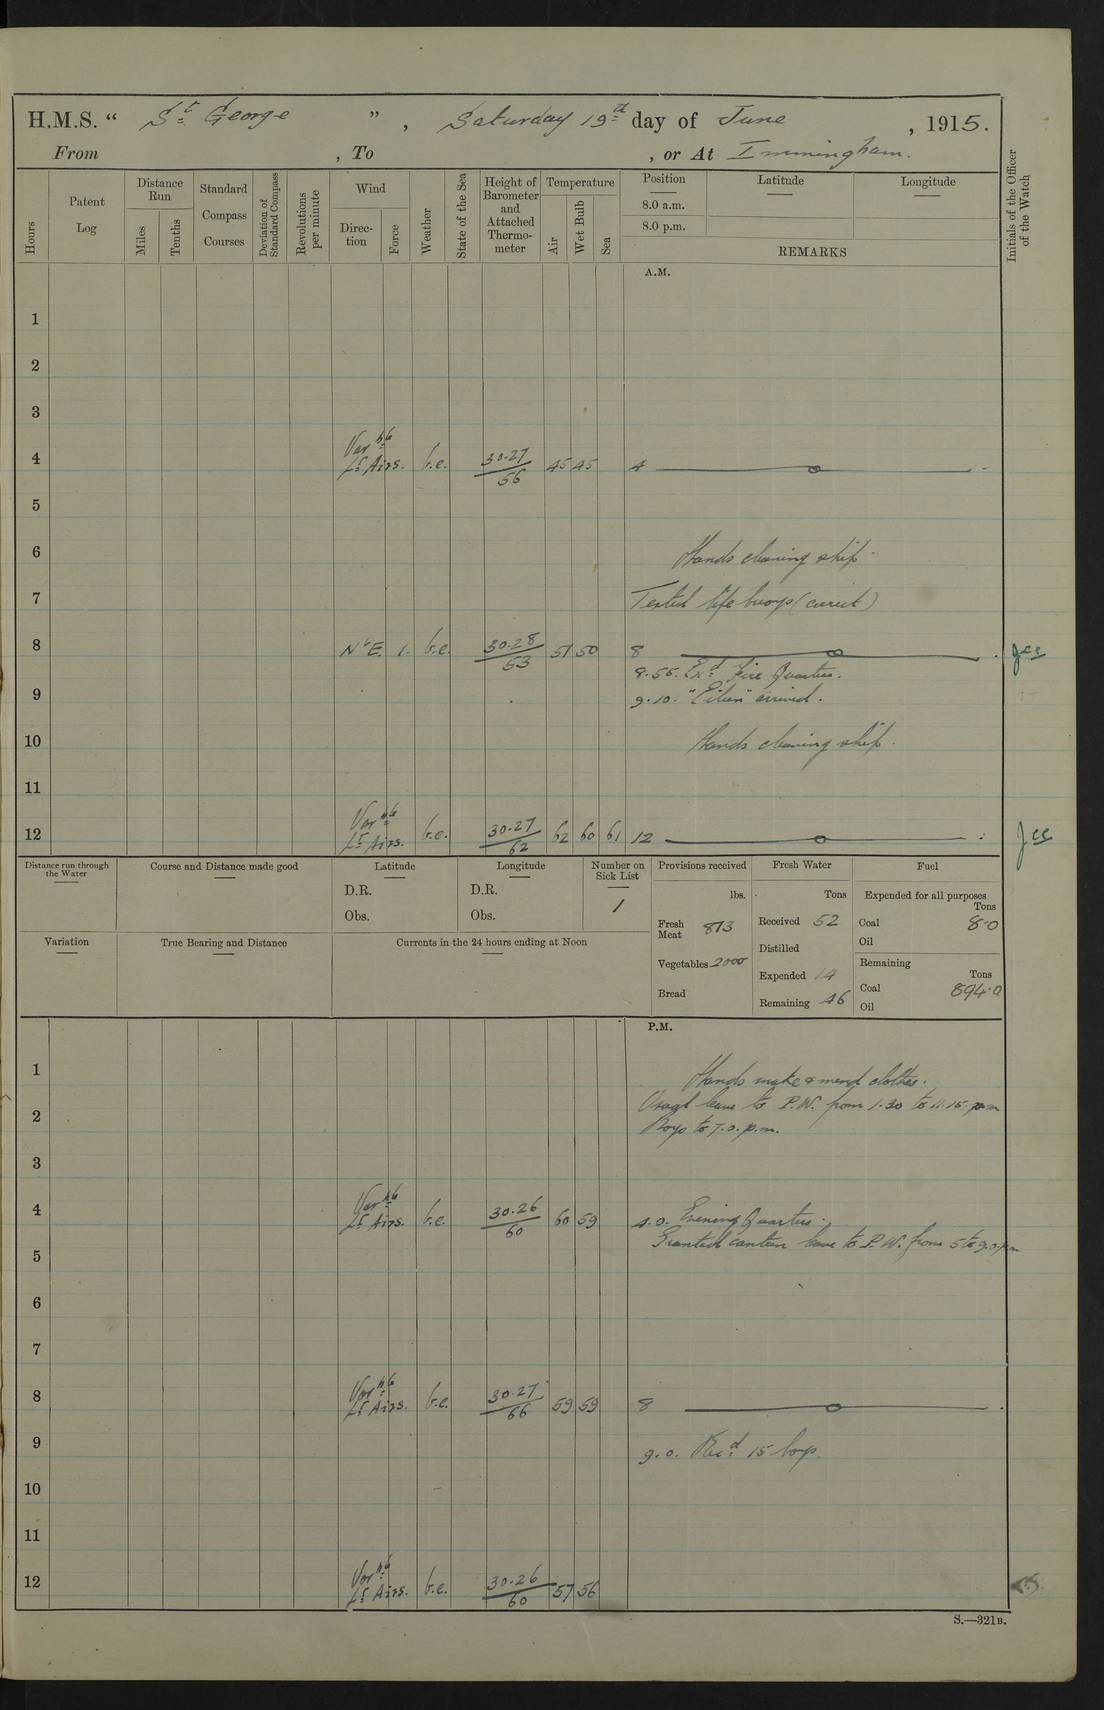 H.M.S. “ St George ” , Saturday 19th day of June , 1915.
From , To , or At Immingham.
Hours
Patent Log
Distance Run
Miles
Tenths
Standard Compass Courses
Deviation of Standard Compass
Revolutions per minute
Wind
Direction
Force
Weather
State of the Sea
Height of Barometer and Attached Thermometer
Temperature
Air
Wet Bulb
Sea
Position
8.0 a.m.
8.0 p.m.
Latitude
Longitude
REMARKS
Initials of the Officer of the Watch
A.M.
1
2
3
4 Var ble Lt Airs. b.c. 30.27/56 45 45 4
5
6 Hands cleaning ship.
7 Tested life buoys (correct)
8 N'E. 1. b.c. 30.28/53 51 50 8
8.55. Exd Fire Quarters.
9 9.10. arrived.
10 Hands cleaning ship.
11
12 Var ble Lt Airs. b.c. 30.27/62 62 60 61 12
Distance run through the Water
Course and Distance made good
Latitude
D.R.
Obs.
Longitude
D.R.
Obs.
Number on Sick List
1
Provisions received
lbs.
Fresh Meat 873
Vegetables 2000
Bread
Fresh Water
Tons
Received 52
Distilled
Expended 14
Remaining 46
Fuel
Expended for all purposes
Tons
Coal 8.0
Oil
Remaining
Tons
Coal 894.0
Oil
Variation
True Bearing and Distance
Currents in the 24 hours ending at Noon
P.M.
1 Hands make & mend clothes.
2 Usual leave to P.W. from 1.30 to 11.15 p.m
Boys to 7.0. p.m.
3
4 Var ble Lt Airs. b.c. 30.26/60 60 59 4.0. Evening Quarters.
5 Granted canteen leave to P.W. from 5 to 9.0 p.m
6
7
8 Var ble Lt Airs. b.c. 30.27/66 59 59 8
9 9.0. Recd 15 boys.
10
11
12 Var ble Lt Airs. b.c. 30.26/60 57 56
S.—321B.